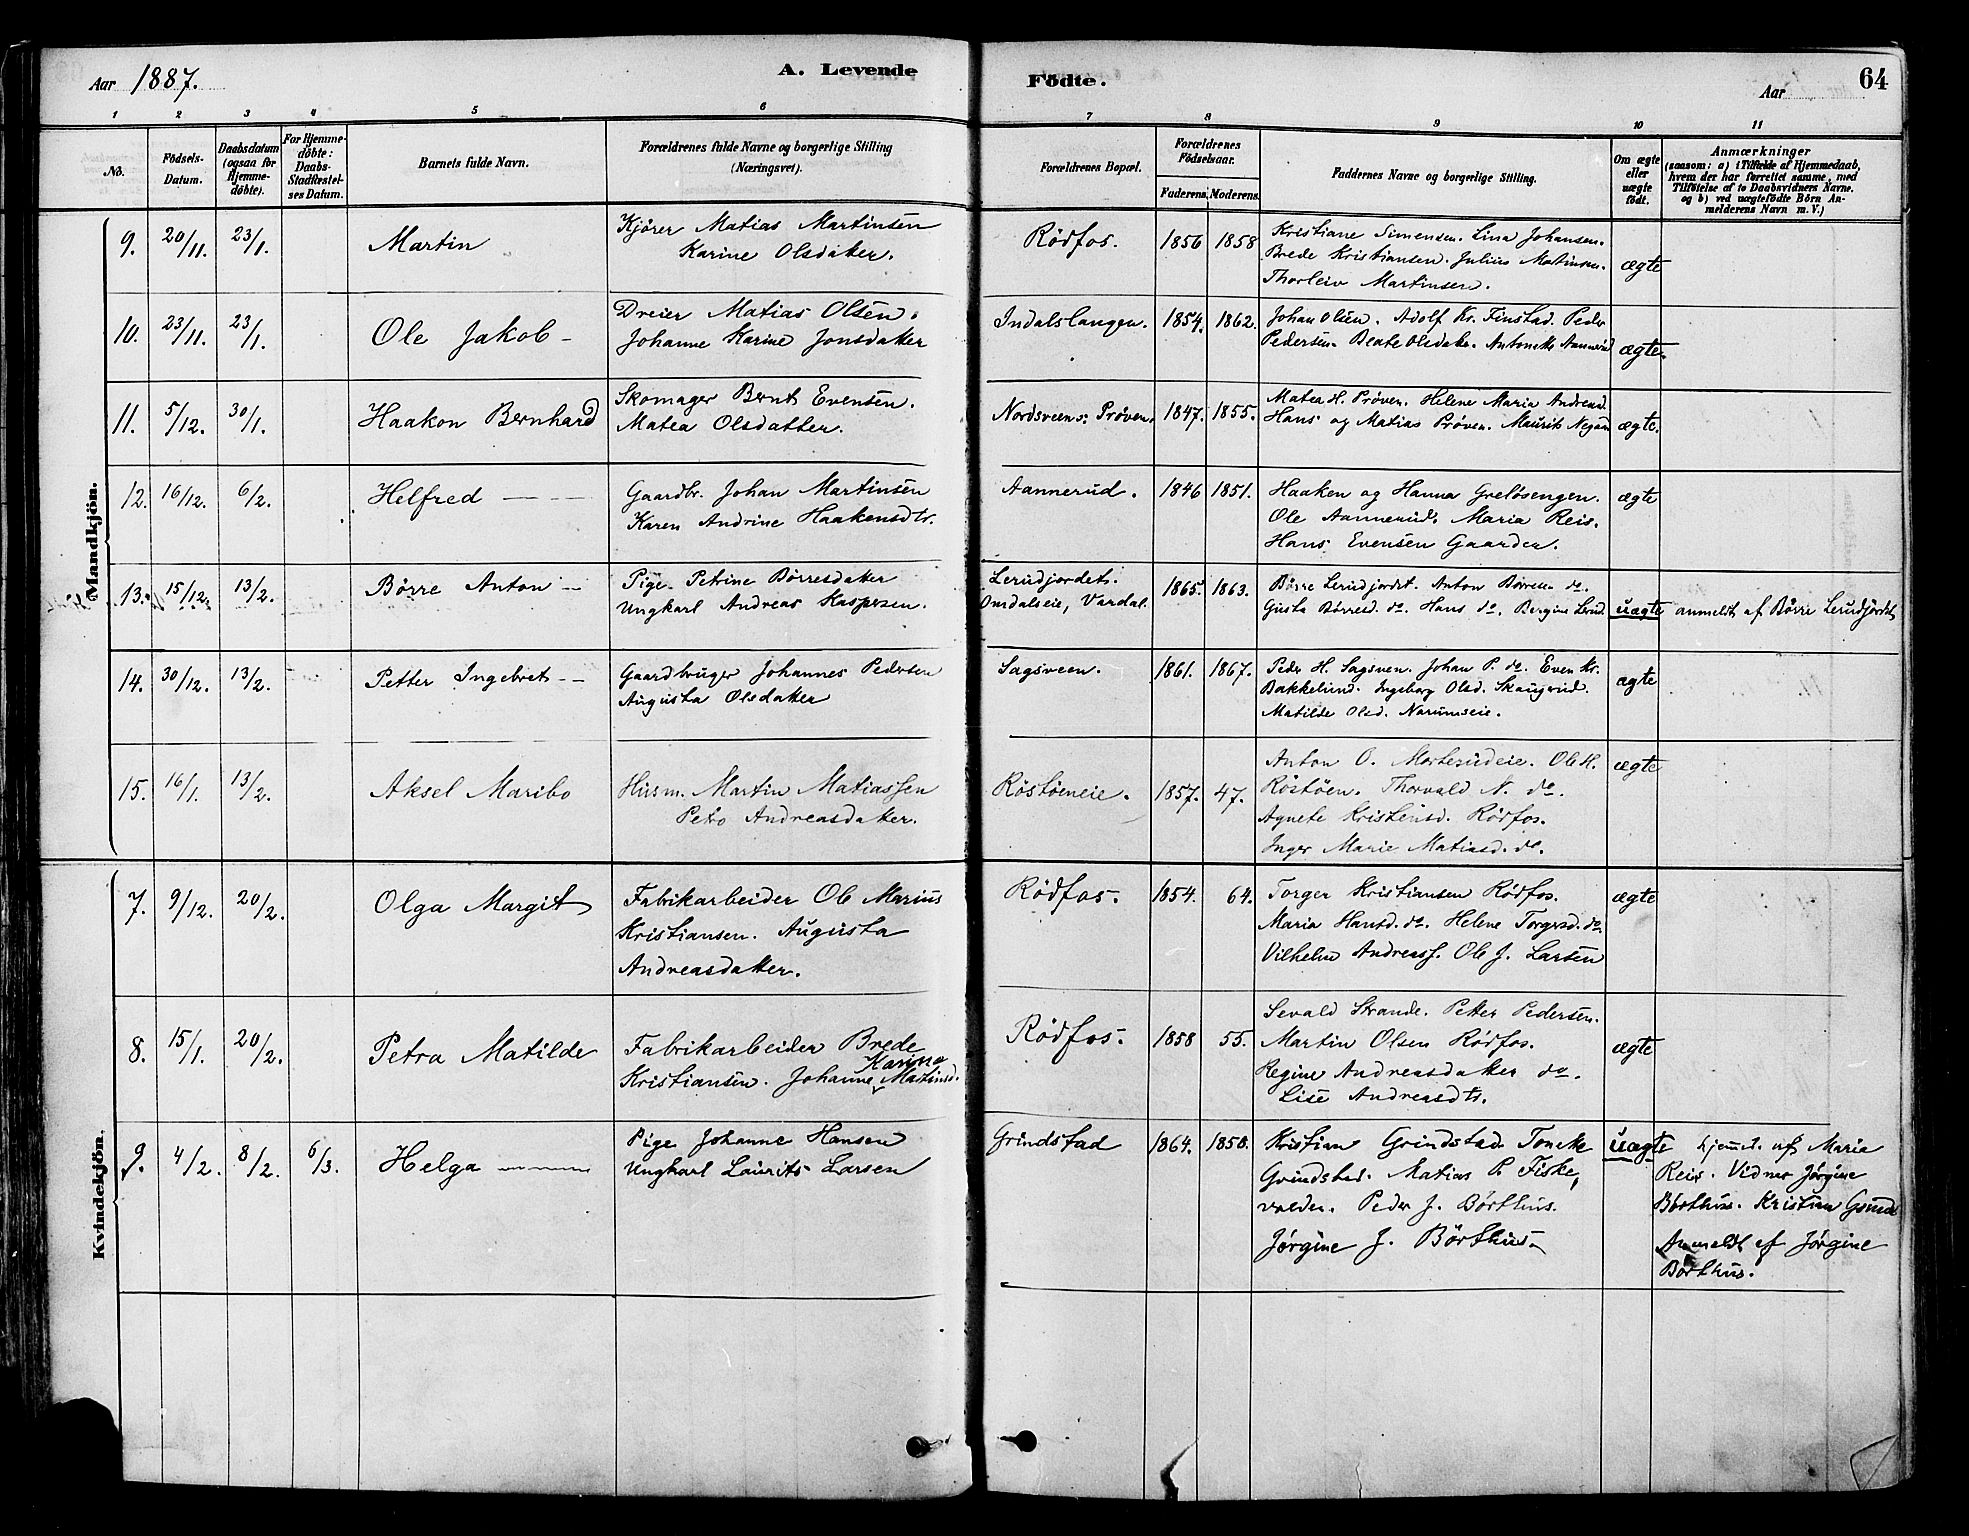 Aar 1887.
A. Levende
Födte.
Aar
64
1 2 3 4 5 6 7 8 9 10 11
No.
Födsels-Datum.
Daabsdatum (ogsaa for Hjemme-döbte).
For Hjemme-döbte: Daabs-Stadfæstel-ses Datum.
Barnets fulde Navn.
Forældrenes fulde Navne og borgerlige Stilling (Næringsvei).
Forældrenes Bopæl.
Forældrenes Födselsaar.
Faderens. Moderens.
Faddernes Navne og borgerlige Stilling.
Om ægte eller uægte födt.
Anmærkninger
(saasom: a) i Tilfælde af Hjemmedaab, hvem der har forrettet samme, med Tilföielse af to Daabsvidners Navne, og b) ved uægtefödte Börn Anmelderens Navn m. V.)
Mandkjön.
9. 20/11. 23/1. Martin
Kjörer Matias Martinsen
Karine Olsdatter.
Rödfos. 1856 1858
Kristiane Simensen. Lina Johansen.
Brede Kristiansen. Julius Martinsen.
Thorleiv Martinsen.
ægte
10. 23/11. 23/1. Ole Jakob -
Dreier Matias Olsen.
Johanne Karine Jonsdatter
Indalslangen. 1854. 1862.
Johan Olsen. Adolf Kr. Finstad. Peder
Pedersen. Beate Olsdatr. Antonette Aannerud
ægte.
11. 5/12. 30/1. Haakon Bernhard
Skomager Bernt Evensen.
Matea Olsdatter.
Nordsveens: Pröven. 1847. 1855.
Matea H. Pröven. Helene Maria Andreasd.
Hans og Matias Pröven. Maurits
ægte.
12. 16/12. 6/2. Helfred
Gaardbr. Johan Martinsen
Karen Andrine Haakensdtr.
Aannerud. 1846 1851.
Haaken og Hanna Grelösengen.
Ole Aannerud. Maria Reis.
Hans Evensen Gaarder.
ægte
13. 15/12. 13/2. Börre Anton
Pige Petrine Börresdatter
Ungkarl Andreas Kaspersen.
Lerudjordet.
Omdalseie, Vardal. 1865. 1863.
Börre Lerudjordet. Anton Börresen do.
Gusta Börresd. do. Hans do. Bergine Lerud
uægte anmeldt af Börre Lerudjordet
14. 30/12. 13/2. Petter Ingebret
Gaardbruger Johannes Pedersen
Augusta Olsdatter
Sagsveen. 1861. 1867.
Peder H. Sagsveen. Johan P. do. Even Kr.
Bakkelund. Ingeborg Olsd. Skaugerud.
Matilde Olsd. Narumseie.
ægte
15. 16/1. 13/2. Aksel Maribo
Husm. Martin Matiassen
Petro Andreasdatter.
Röstöeneie. 1857. 47.
Anton O. Morterudeie. Ole H.
Röstöen. Thorvald N. do.
Agnete Kristensd. Rödfos.
Inger Marie Matiasd. do.
ægte
Kvindekjön.
7. 9/12. 20/2. Olga Margit
Fabrikarbeider Ole Marius
Kristiansen. Augusta
Andreasdatter.
Rödfos. 1854. 64.
Torger Kristiansen Rödfos.
Maria Hansd. do. Helene Torgersd. do.
Vilhelm Andreass. Ole J. Larsen
ægte
8. 15/1. 20/2. Petra Matilde
Fabrikarbeider Brede
Kristiansen. Johanne Karine Martinsd.
Rödfos. 1858 55.
Sevald Strande. Petter Pedersen.
Martin Olsen Rödfos.
Regine Andreasdatter do.
Lise Andreasdtr.
ægte
9. 4/2. 8/2. 6/3. Helga
Pige Johanne Hansen
Ungkarl Laurits Larsen
Grindstad 1864. 1850.
Kristian Grindstad. Toneke
Grindstad. Matias P. Fiske,
volden. Peder J. Börthus.
Jörgine J. Börthus.
uægte
hjemmed. af Maria
Reis. Vidner Jörgine
Börthus. Kristian
Anmeldt af Jörgine
Börthus.